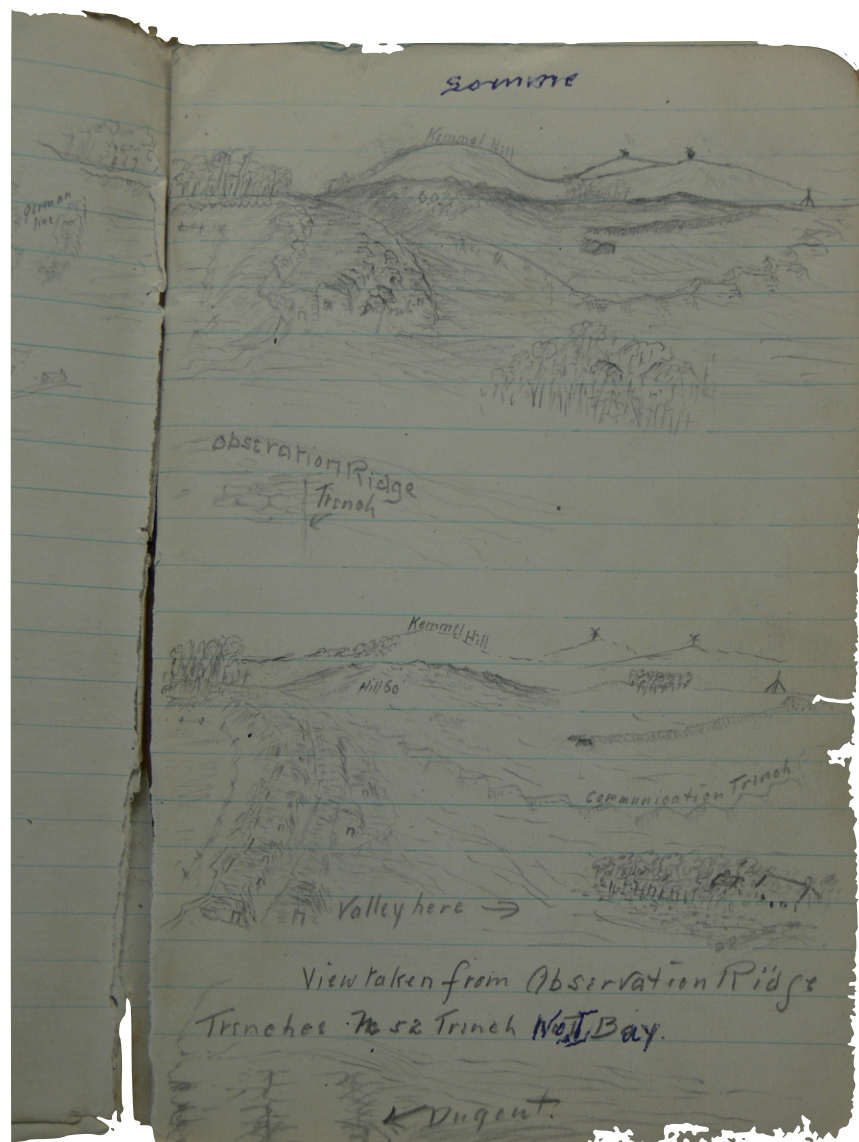 german
line
Somme
Kemmel Hill
60
Obseration Ridge
Trench
Kemmel Hill
Hill 60
Communication Trench
Valley here
View taken from Observation Ridge
Trenches No 52 Trench No II Bay.
Dugout.